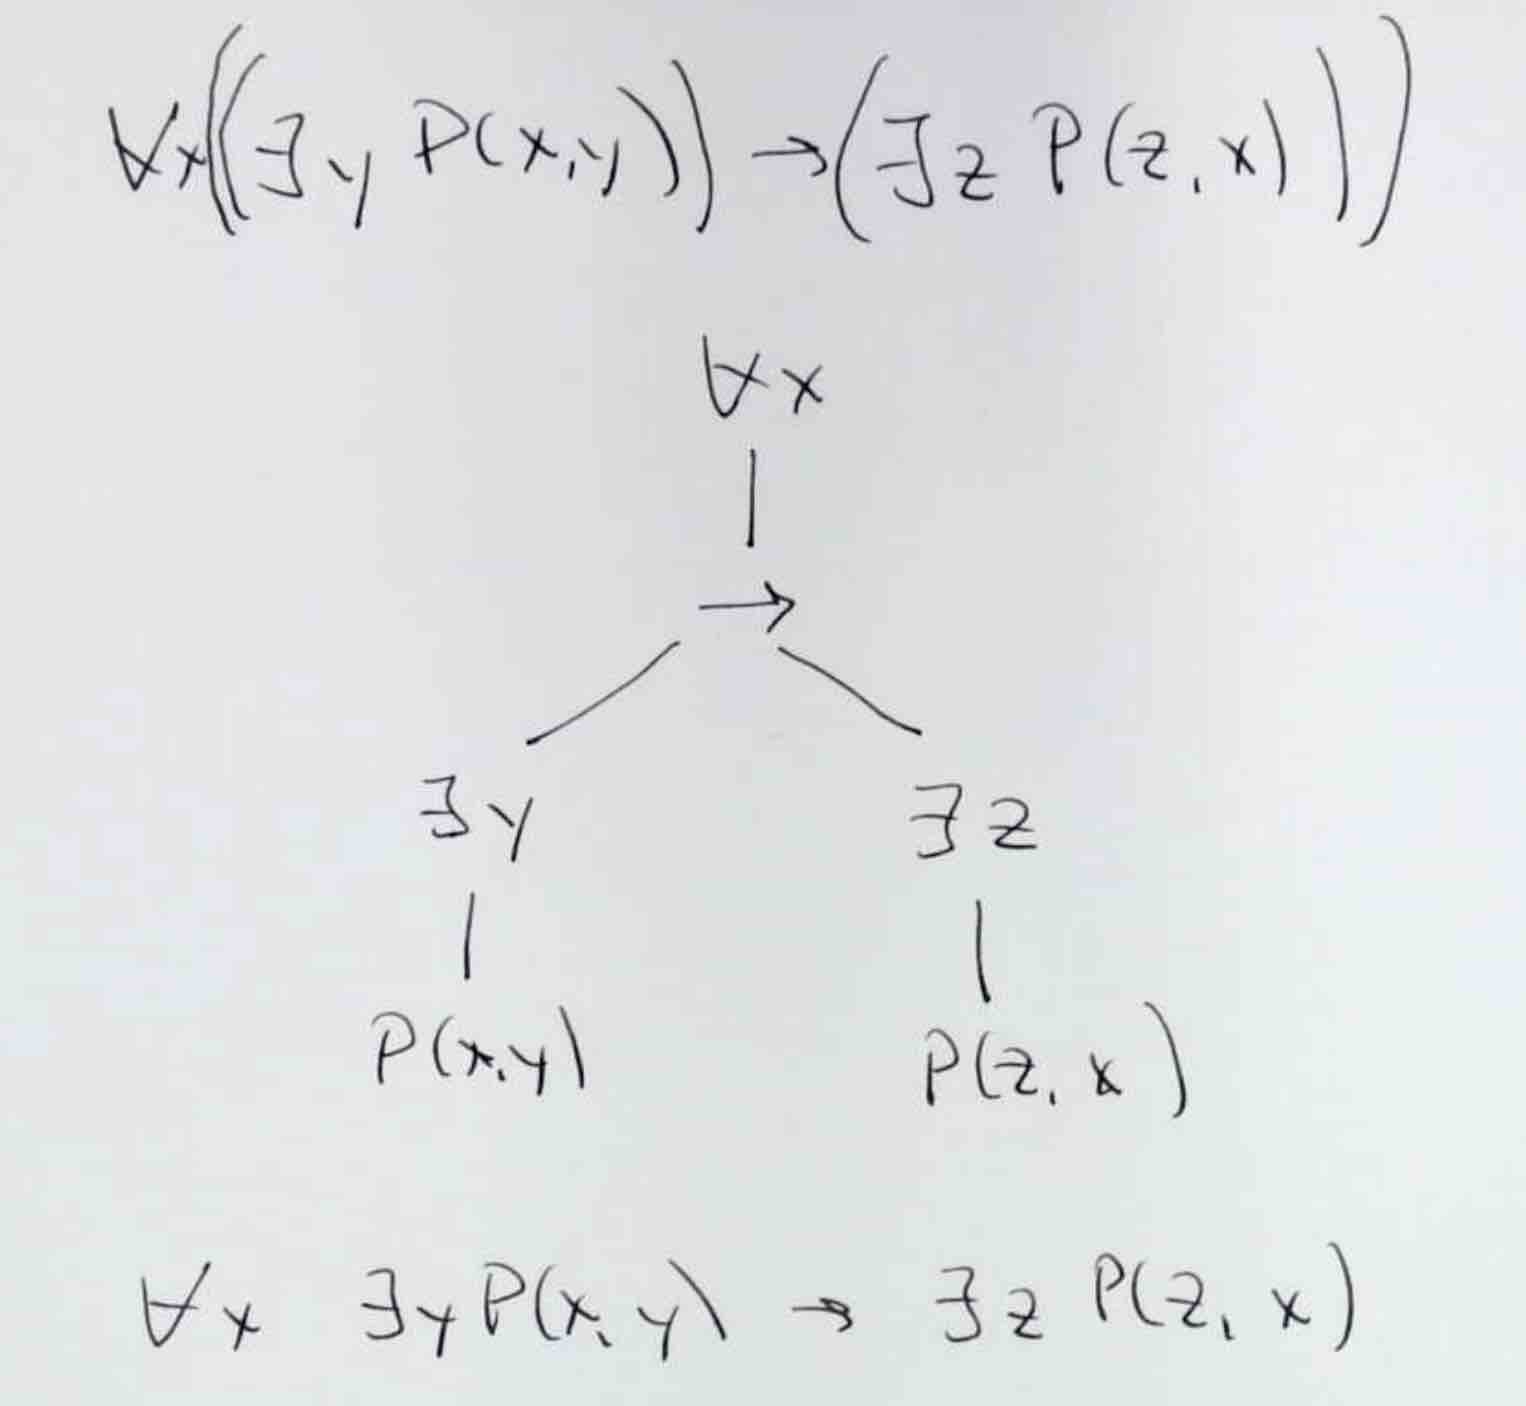 ∀x((∃y P(x,y)) → (∃z P(z,x)))
∀x
→
∃y ∃z
P(x,y) P(z,x)
∀x ∃y P(x,y) → ∃z P(z,x)